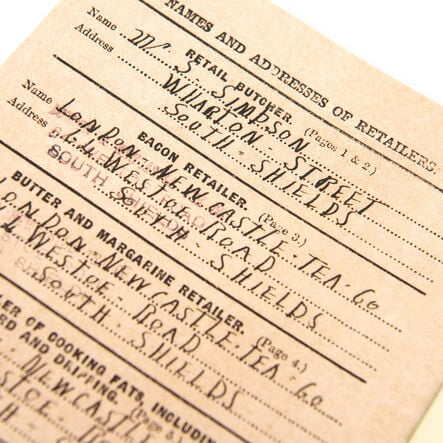 NAMES AND ADDRESSES OF RETAILERS.
RETAIL BUTCHER. (Pages 1 & 2.)
Name S. SIMPSON
Address WHARTON - STREET
SOUTH - SHIELDS
BACON RETAILER. (Page 3.)
Name LONDON - NEWCASTLE - TEA - Co
Address WESTOE - ROAD
SOUTH - SHIELDS
SOUTH SHIELDS
BUTTER AND MARGARINE RETAILER. (Page 4.)
ONDON - NEWCASTLE - TEA - Co
WESTOE - ROAD
SOUTH - SHIELDS
LER OF COOKING FATS, INCLUDING
RD AND DRIPPING. (Page 5.)
NEWCASTLE